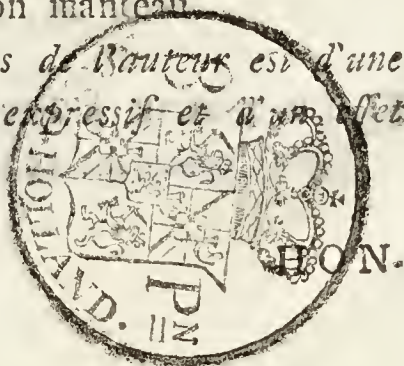 on manteau
s de l'auteur est d'une
expressif et d'un effet
HON-